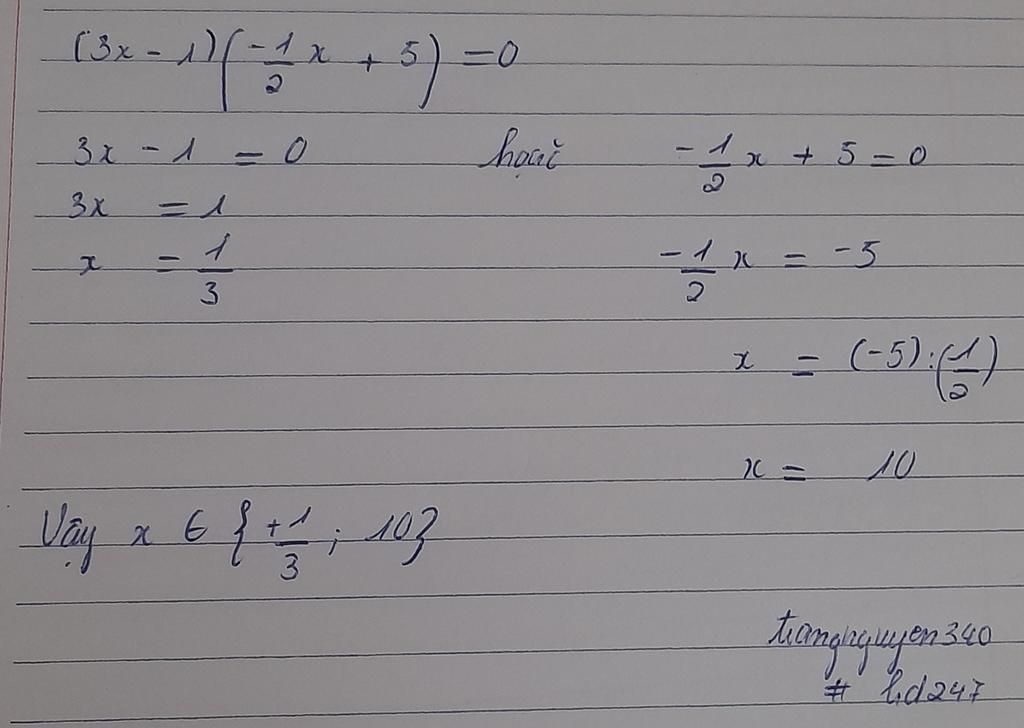 (3x - 1)(-1/2 x + 5) = 0
3x - 1 = 0 hoặc -1/2 x + 5 = 0
3x = 1
x = 1/3 -1/2 x = -5
x = (-5) : (1/2)
x = 10
Vậy x ∈ {+1/3 ; 10}
trangnguyen340
# hd247